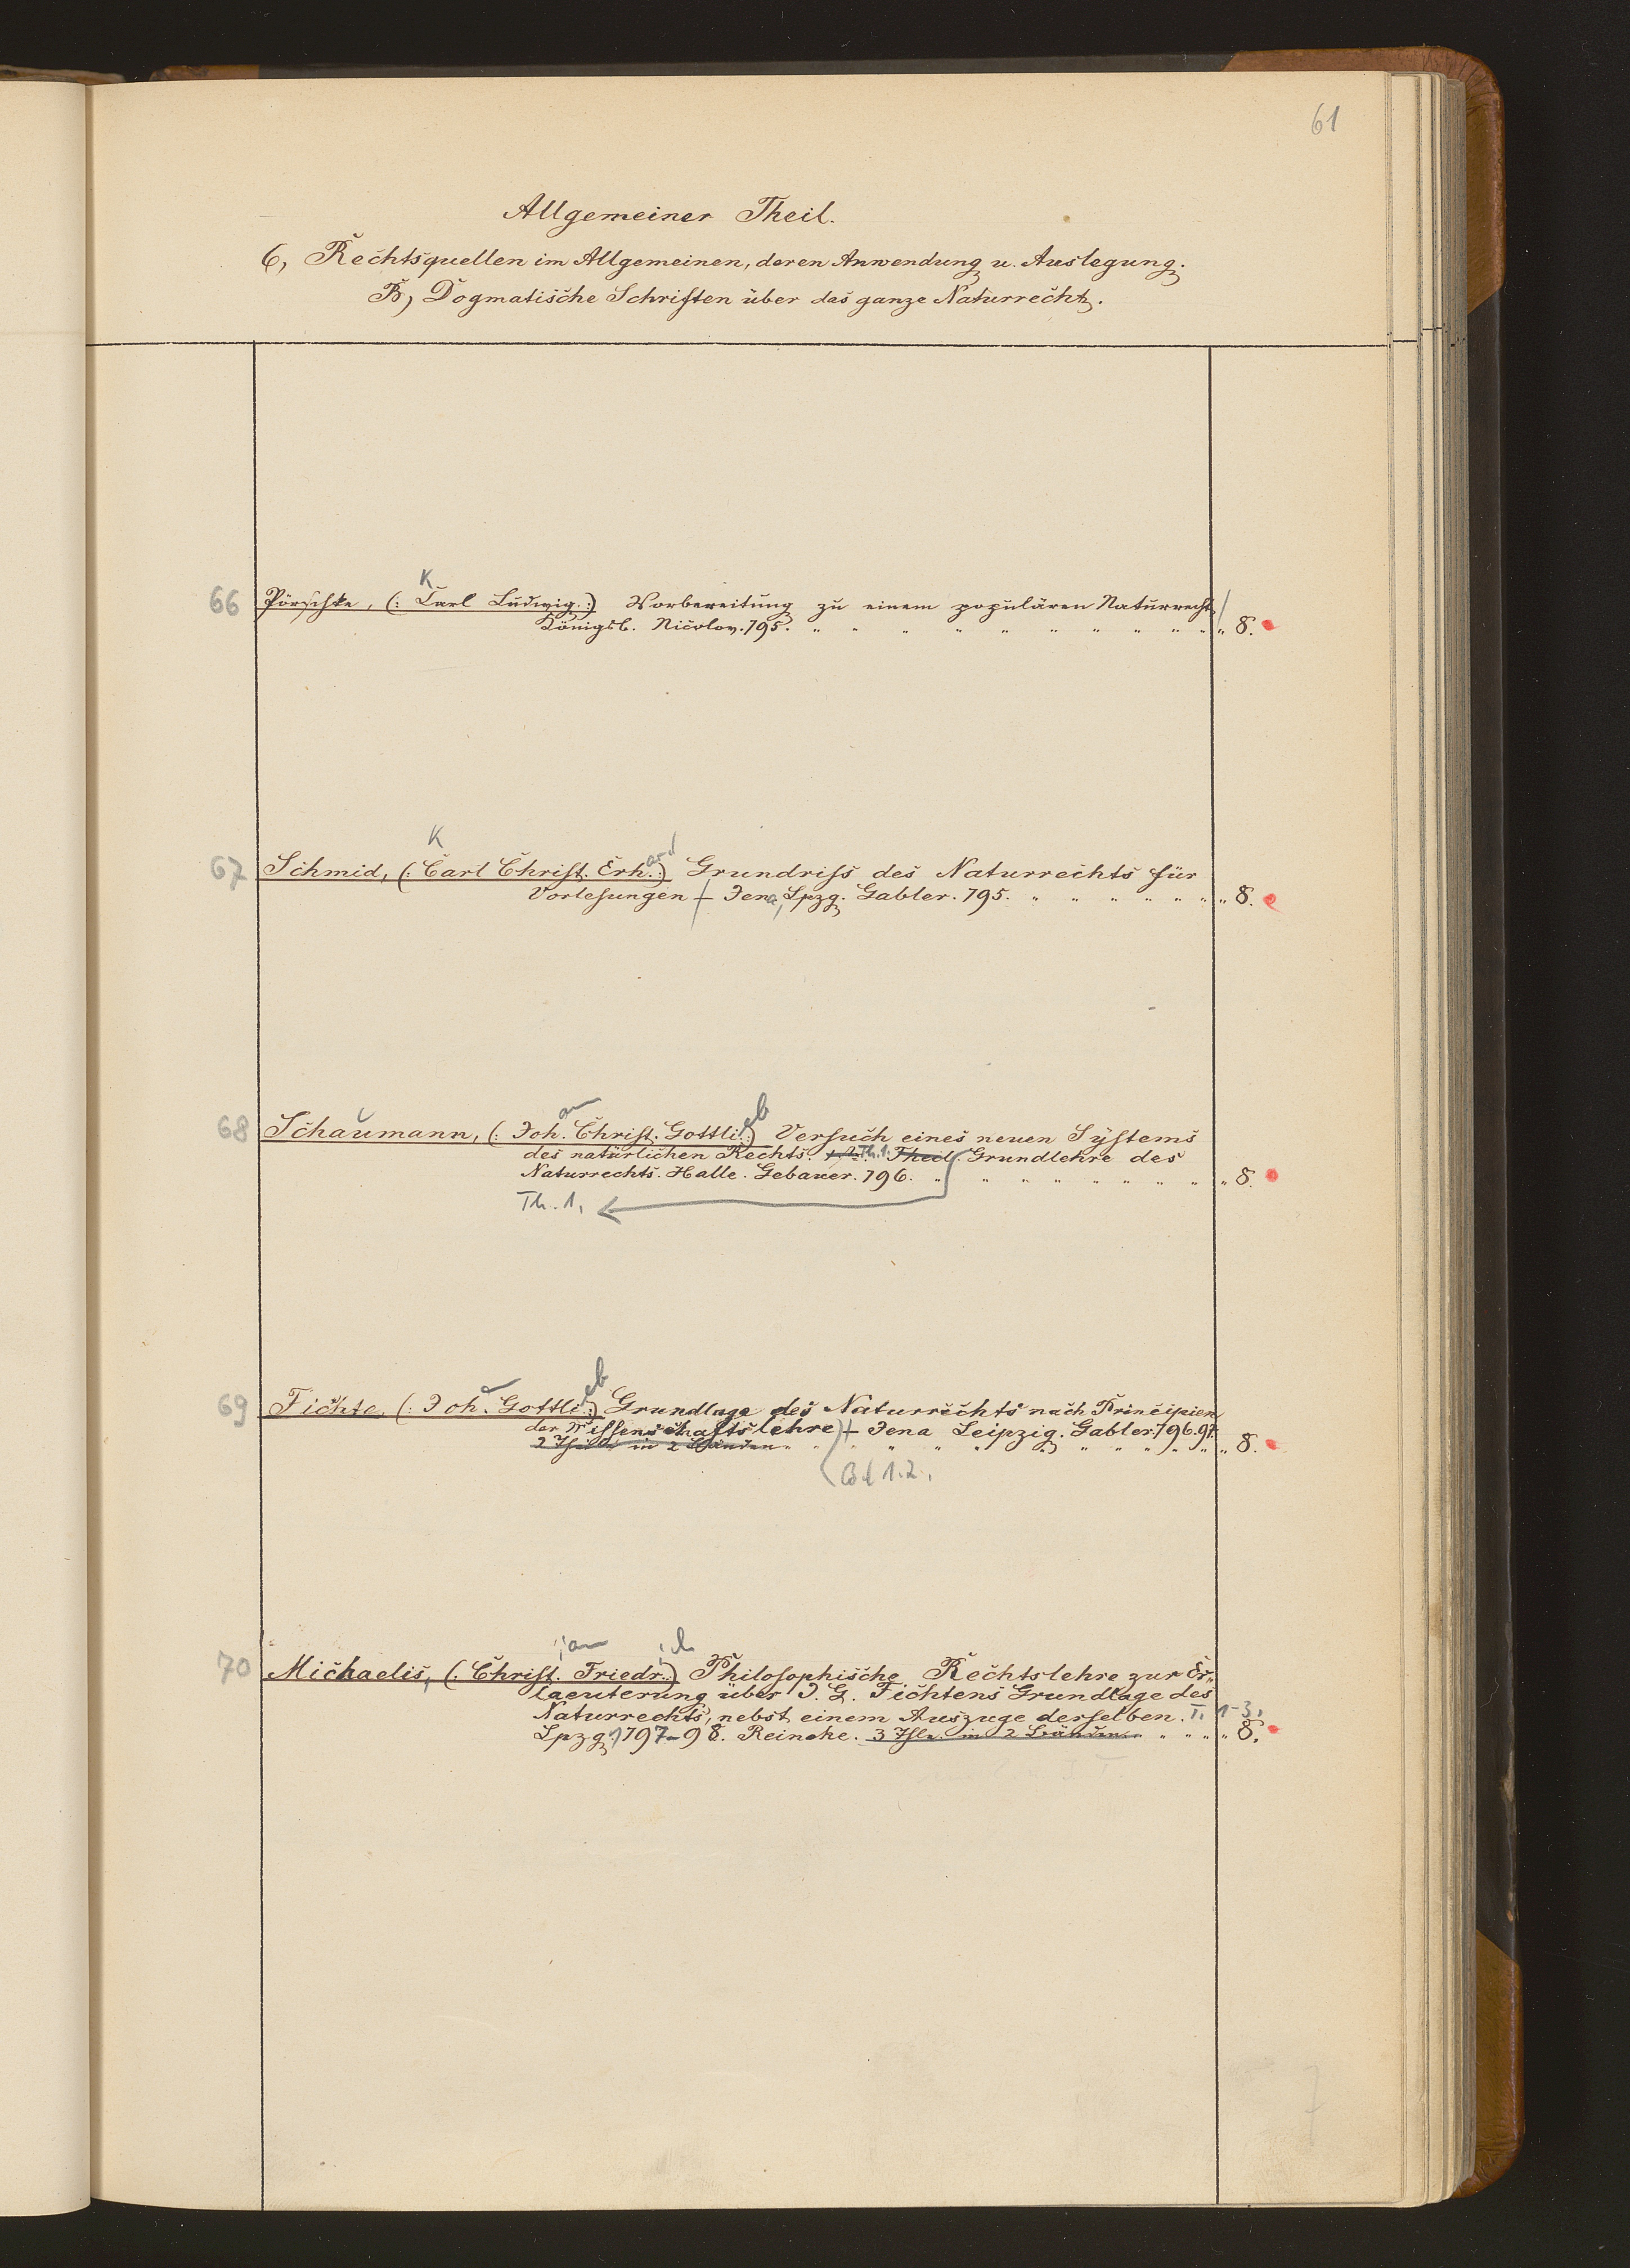 61
Allgemeiner Theil.
6, Rechtsquellen im Allgemeinen, deren Anwendung u. Auslegung.
B, Dogmatische Schriften über das ganze Naturrecht.
K
66 Pörschke, (: Carl Ludwig :) Vorbereitung zu einem populären Naturrecht
Königsb. Nicolov. 795. " " " " " " " " " " " 8.
K ard
67 Schmid, (: Carl Christ. Erh. :) Grundriss des Naturrechts für
Vorlesungen + Jena, Lpzg. Gabler. 795. " " " " " " " 8.
an eb
68 Schaumann, (: Joh. Christ. Gottli. :) Versuch eines neuen Systems
des natürlichen Rechts. Th. 1. Theil. Grundlehre des
Naturrechts. Halle. Gebauer. 796. " " " " " " " " " 8.
Th. 1.
eb
69 Fichte, (: Joh. Gottli. :) Grundlage des Naturrechts nach Principien
der Wissenschaftslehre + Jena Leipzig. Gabler. 796.97.
2 Theile in 2 Bänden " " " " " " " " " 8.
Bd 1.2.
ian ich
70 Michaelis, (: Christ. Friedr. :) Philosophische Rechtslehre zur Er-
laeuterung über J. G. Fichtens Grundlage des
Naturrechts, nebst einem Auszuge derselben. T. 1-3.
Lpzg. 1797-98. Reincke. 3 Thle. in 2 Bänden " " " " 8.
7